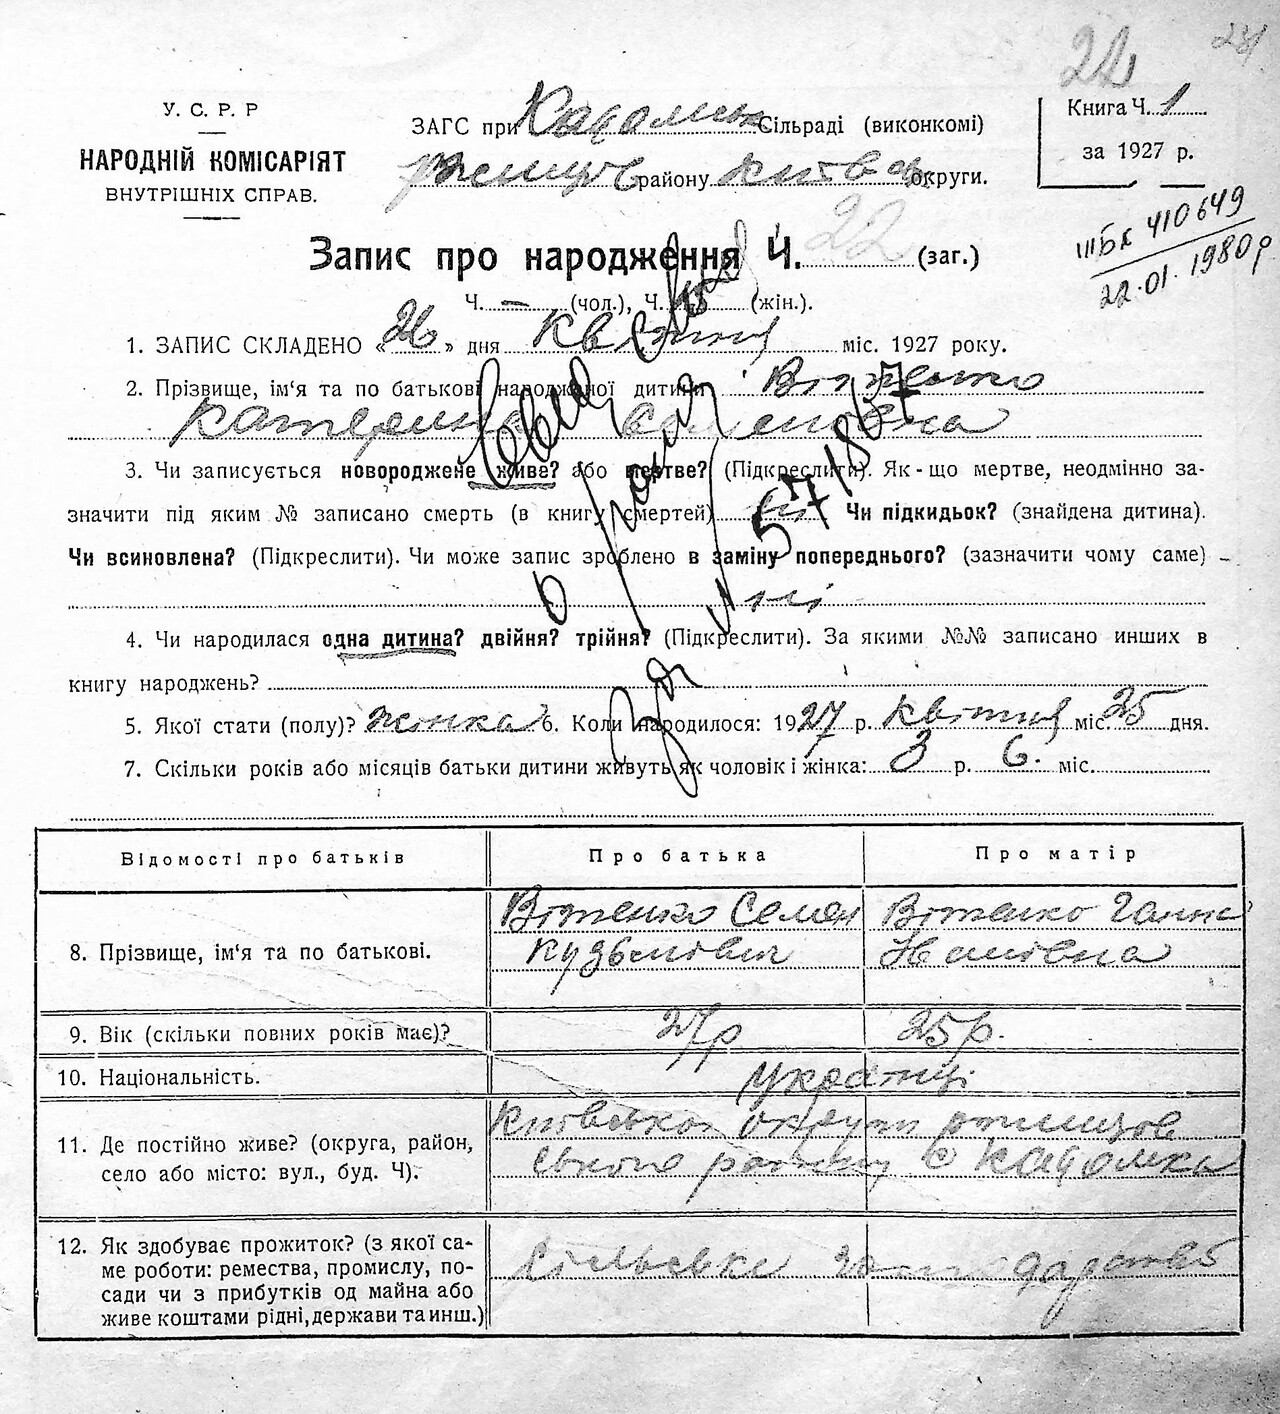 22
231
У. С. Р. Р
НАРОДНІЙ КОМІСАРІЯТ
ВНУТРІШНІХ СПРАВ.
ЗАГС при Кадомській Сільраді (виконкомі)
Ржищів району Київськ округи.
Книга Ч. 1
за 1927 р.
ШБК 410649
22.01.1980р
Запис про народження Ч. 22 (заг.)
Ч. — (чол.), Ч. (жін.).
1. ЗАПИС СКЛАДЕНО «26» дня квітня міс. 1927 року.
2. Прізвище, ім‘я та по батькові народженої дитини Вітенко
Катерина Семенівна
3. Чи записується новороджене живе? або мертве? (Підкреслити). Як-що мертве, неодмінно за-
значити під яким № записано смерть (в книгу смертей) ні Чи підкидьок? (знайдена дитина).
Чи всиновлена? (Підкреслити). Чи може запис зроблено в заміну попереднього? (зазначити чому саме) –
ні
4. Чи народилася одна дитина? двійня? трійня? (Підкреслити). За якими №№ записано инших в
книгу народжень?
5. Якої стати (полу)? жінка 6. Коли народилося: 1927 р. квітня міс. 25 дня.
7. Скільки років або місяців батьки дитини живуть як чоловік і жінка: 3 р. 6. міс.
Свид
о
№ 571867
Відомості про батьків Про батька Про матір
8. Прізвище, ім‘я та по батькові. Вітенко Семен Кузьмович Вітенко Ганна
9. Вік (скільки повних років має)? 27р 25р.
10. Національність. Українці
11. Де постійно живе? (округа, район,
село або місто: вул., буд. Ч). Київської округи Ржищів
ського району с Кадомка
12. Як здобуває прожиток? (з якої са-
ме роботи: ремества, промислу, по-
сади чи з прибутків од майна або
живе коштами рідні, держави та инш.) Сільське господарство